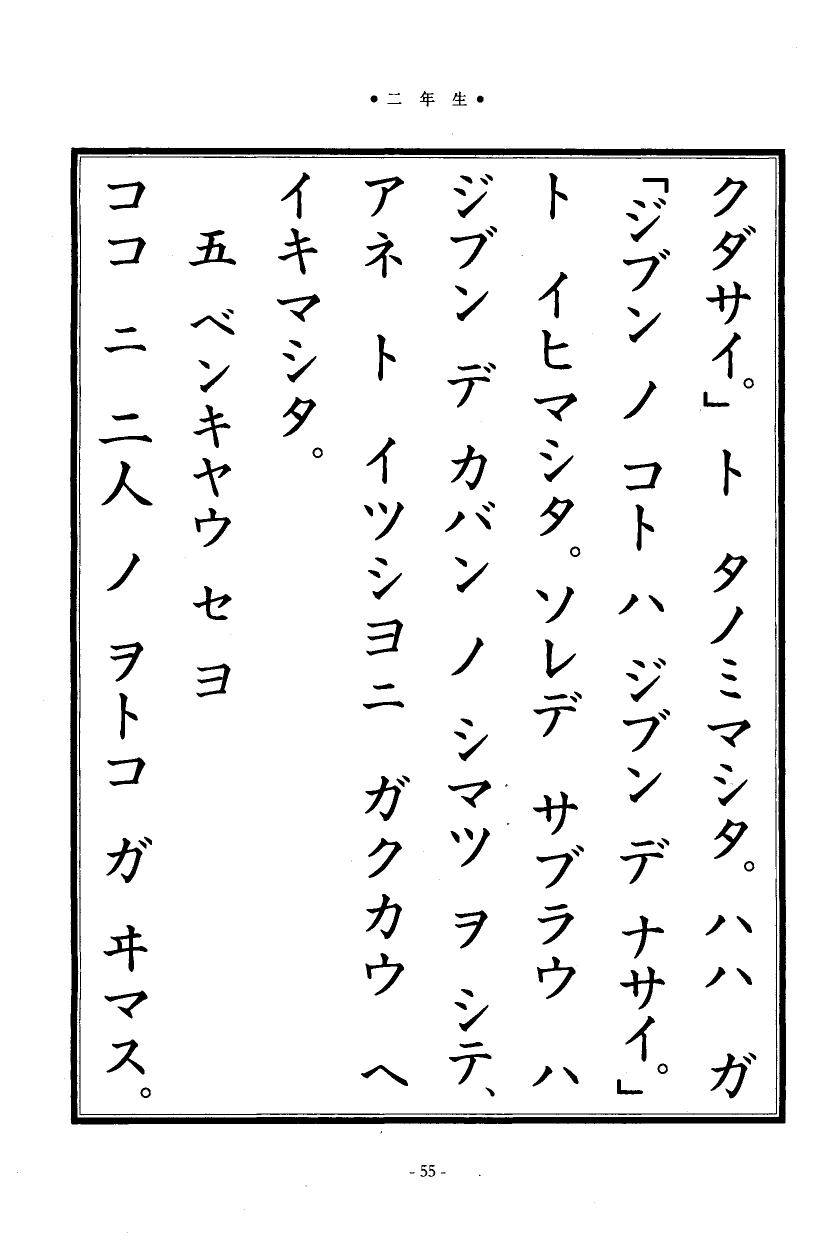 • 二年生 •
クダサイ。」ト タノミマシタ。ハハ ガ
「ジブン ノ コト ハ ジブン デ ナサイ。」
ト イヒマシタ。ソレデ サブラウ ハ
ジブン デ カバン ノ シマツ ヲ シテ、
アネ ト イツシヨニ ガクカウ ヘ
イキマシタ。
五 ベンキヤウ セヨ
ココ ニ 二人 ノ ヲトコ ガ ヰマス。
- 55 -